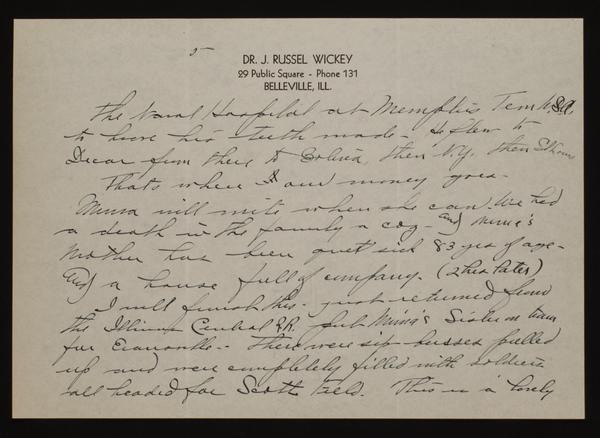 5
DR. J. RUSSEL WICKEY
29 Public Square - Phone 131
BELLEVILLE, ILL.
the Naval Hospital at Memphis Tenn
to have his teeth made - He flew to
from there to Bolivia, then N.Y. then St Louis
That's where our money goes -
Mima will write when she can. We had
a death in the family a coz - and Mima's
Mother has been quiet sick 83 yrs of age -
and a house full of company. (2 hrs later)
I will finish this - just returned from
the Illinois Central R.R. put Mima's Sister on train
for Evansville - There were six busses pulled
up and were completely filled with soldiers
all headed for Scott Field. This is a lovely